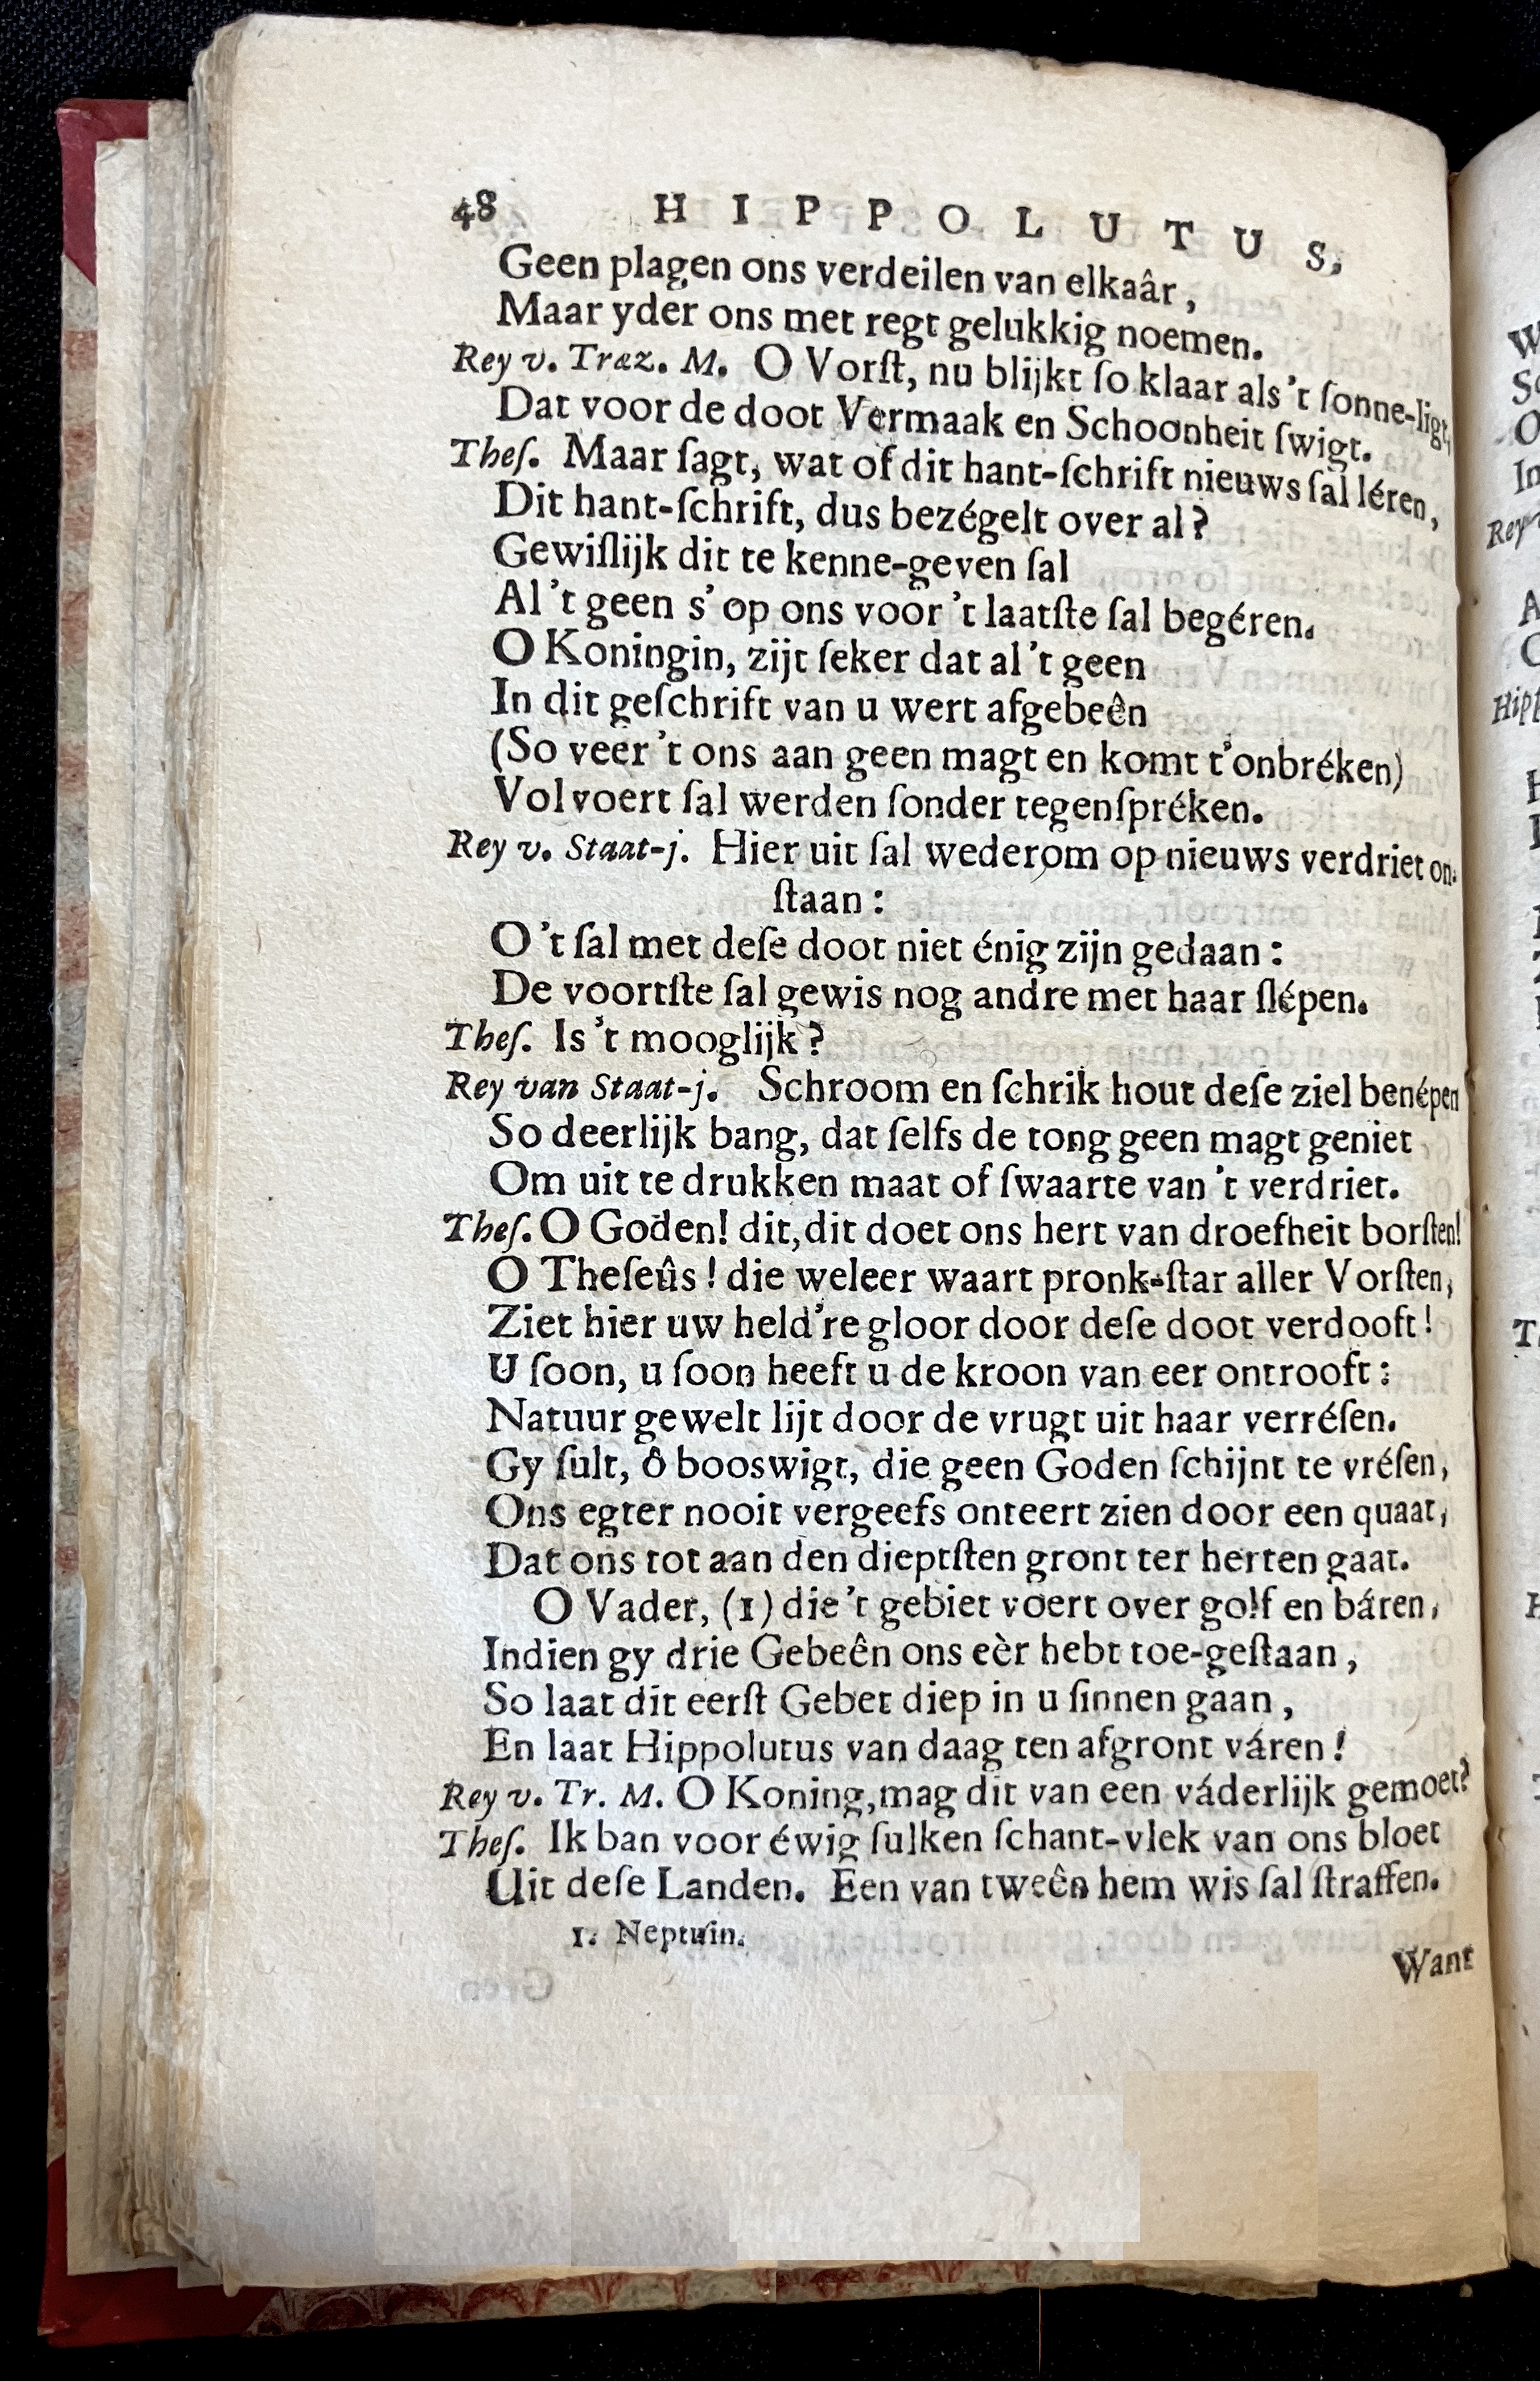 48 HIPPOLUTUS,
Geen plagen ons verdeilen van elkaâr,
Maar yder ons met regt gelukkig noemen.
Rey v. Træz. M. O Vorſt, nu blijkt ſo klaar als 't ſonne-ligt,
Dat voor de doot Vermaak en Schoonheit ſwigt.
Theſ. Maar ſagt, wat of dit hant-ſchrift nieuws ſal léren,
Dit hant-ſchrift, dus bezégelt over al?
Gewiſlijk dit te kenne-geven ſal
Al 't geen s' op ons voor 't laatſte ſal begéren.
O Koningin, zijt ſeker dat al 't geen
In dit geſchrift van u wert afgebeên
(So veer 't ons aan geen magt en komt t'onbréken)
Volvoert ſal werden ſonder tegenſpréken.
Rey v. Staat-j. Hier uit ſal wederom op nieuws verdriet on-
ſtaan:
O 't ſal met deſe doot niet énig zijn gedaan:
De voortſte ſal gewis nog andre met haar ſlépen.
Theſ. Is 't mooglijk?
Rey van Staat-j. Schroom en ſchrik hout deſe ziel benépen
So deerlijk bang, dat ſelfs de tong geen magt geniet
Om uit te drukken maat of ſwaarte van 't verdriet.
Theſ. O Goden! dit, dit doet ons hert van droefheit borſten!
O Theſeûs! die weleer waart pronk-ſtar aller Vorſten,
Ziet hier uw held're gloor door deſe doot verdooft!
U ſoon, u ſoon heeft u de kroon van eer ontrooft:
Natuur gewelt lijt door de vrugt uit haar verréſen.
Gy ſult, ô booswigt, die geen Goden ſchijnt te vréſen,
Ons egter nooit vergeefs onteert zien door een quaat,
Dat ons tot aan den dieptſten gront ter herten gaat.
O Vader, (1) die 't gebiet voert over golf en báren,
Indien gy drie Gebeên ons eèr hebt toe-geſtaan,
So laat dit eerſt Gebet diep in u ſinnen gaan,
En laat Hippolutus van daag ten afgront váren!
Rey v. Tr. M. O Koning, mag dit van een váderlijk gemoet?
Theſ. Ik ban voor éwig ſulken ſchant-vlek van ons bloet
Uit deſe Landen. Een van tweên hem wis ſal ſtraffen.
1. Neptuin.
Want